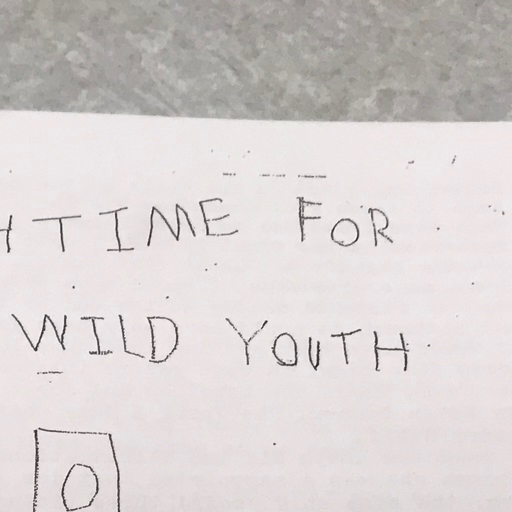 TIME FOR
WILD YOUTH